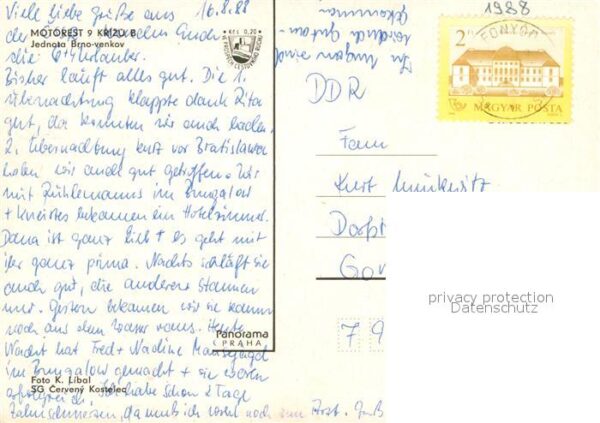 Viele liebe Grüße aus 16.8.88
MOTOREST 9 KŘÍŽŮ B
Jednota Brno-venkov
der
die 6 Urlauber.
Bisher läuft alles gut. Die 1.
Übernachtung klappte dank Rita
gut, da konnten wir auch baden.
2. Übernachtung kurz vor Bratislava
haben wir auch gut getroffen. Wir
mit Zühlemanns im Bungalow
+ Kneistes bekamen ein Hotelzimmer.
Dana ist ganz lieb + es geht mit
ihr ganz prima. Nachts schläft sie
auch gut, die anderen staunen
nur. Gestern bekamen wir sie kaum
noch aus dem Wasser raus. Heute
Nacht hat Fred + Nadine Mausejagd
im Bungalow gemacht + sie waren
erfolgreich. Ich habe schon 2 Tage
Zahnschmerzen, da muß ich noch zum Arzt. Gruß
Foto K. Líbal
SG Červený Kostelec
Panorama
PRAHA
Kčs 0,20
In Ungarn sind
wir auch gut an-
gekommen
1988
FONYÓD
2 Ft
MAGYAR POSTA
DDR
Fam
Kurt
Dorfst
Gor
7 9
privacy protection
Datenschutz